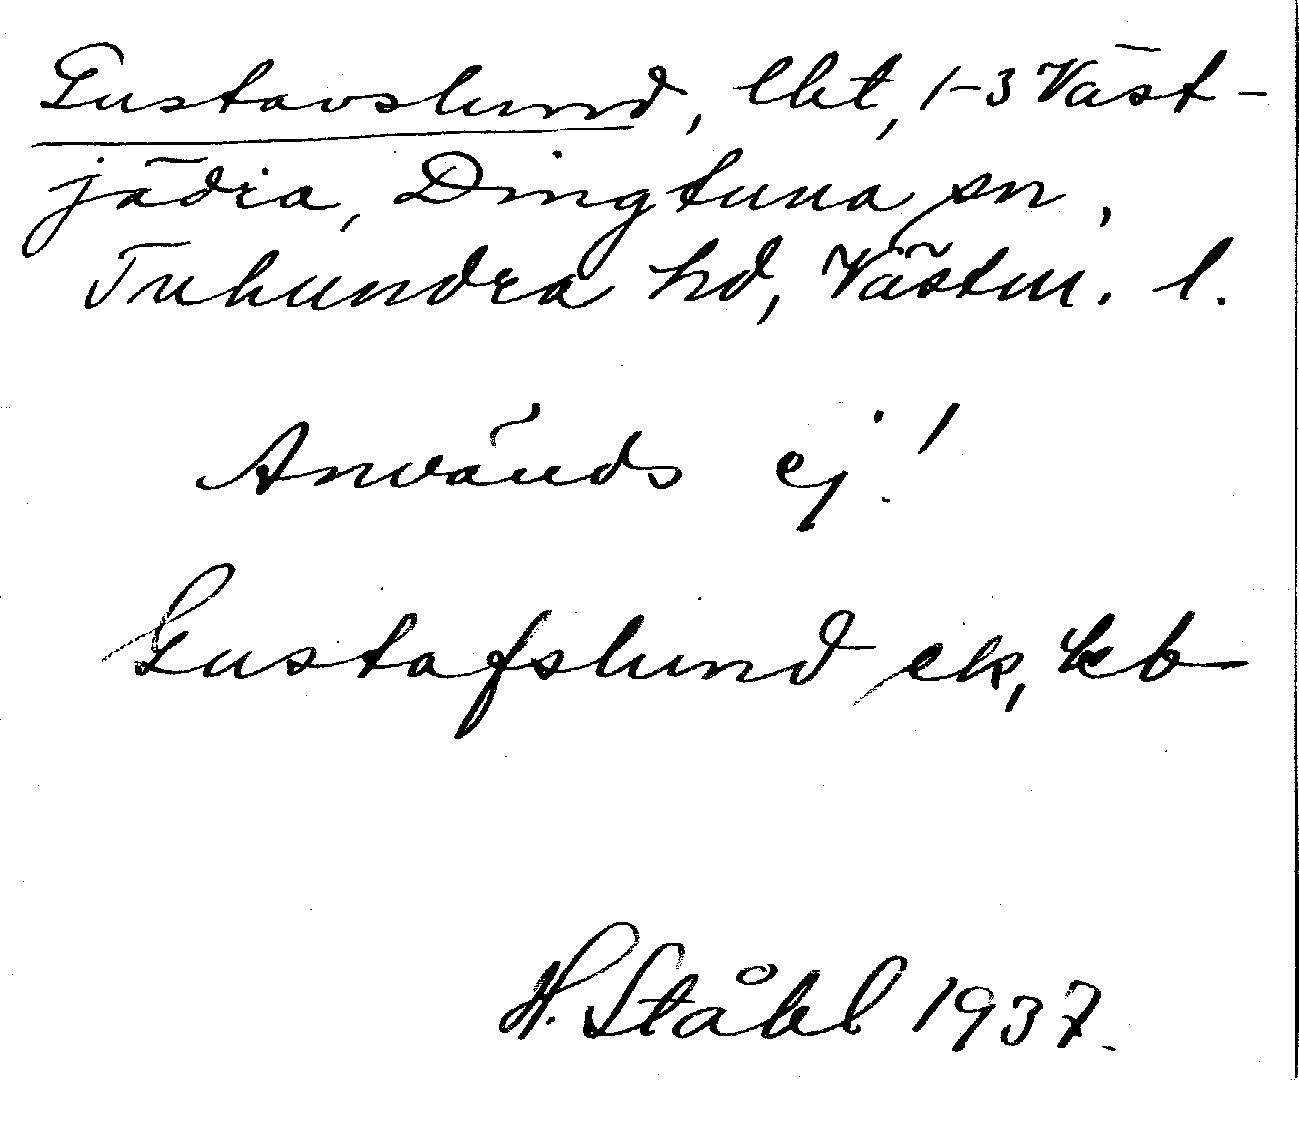 Gustavslund, lht, 1-3 Väst-
jädra, Dingtuna sn,
Tuhundra hd, Västm. l.
Används ej!
Gustafslund ek, kb
H. Ståhl 1937.